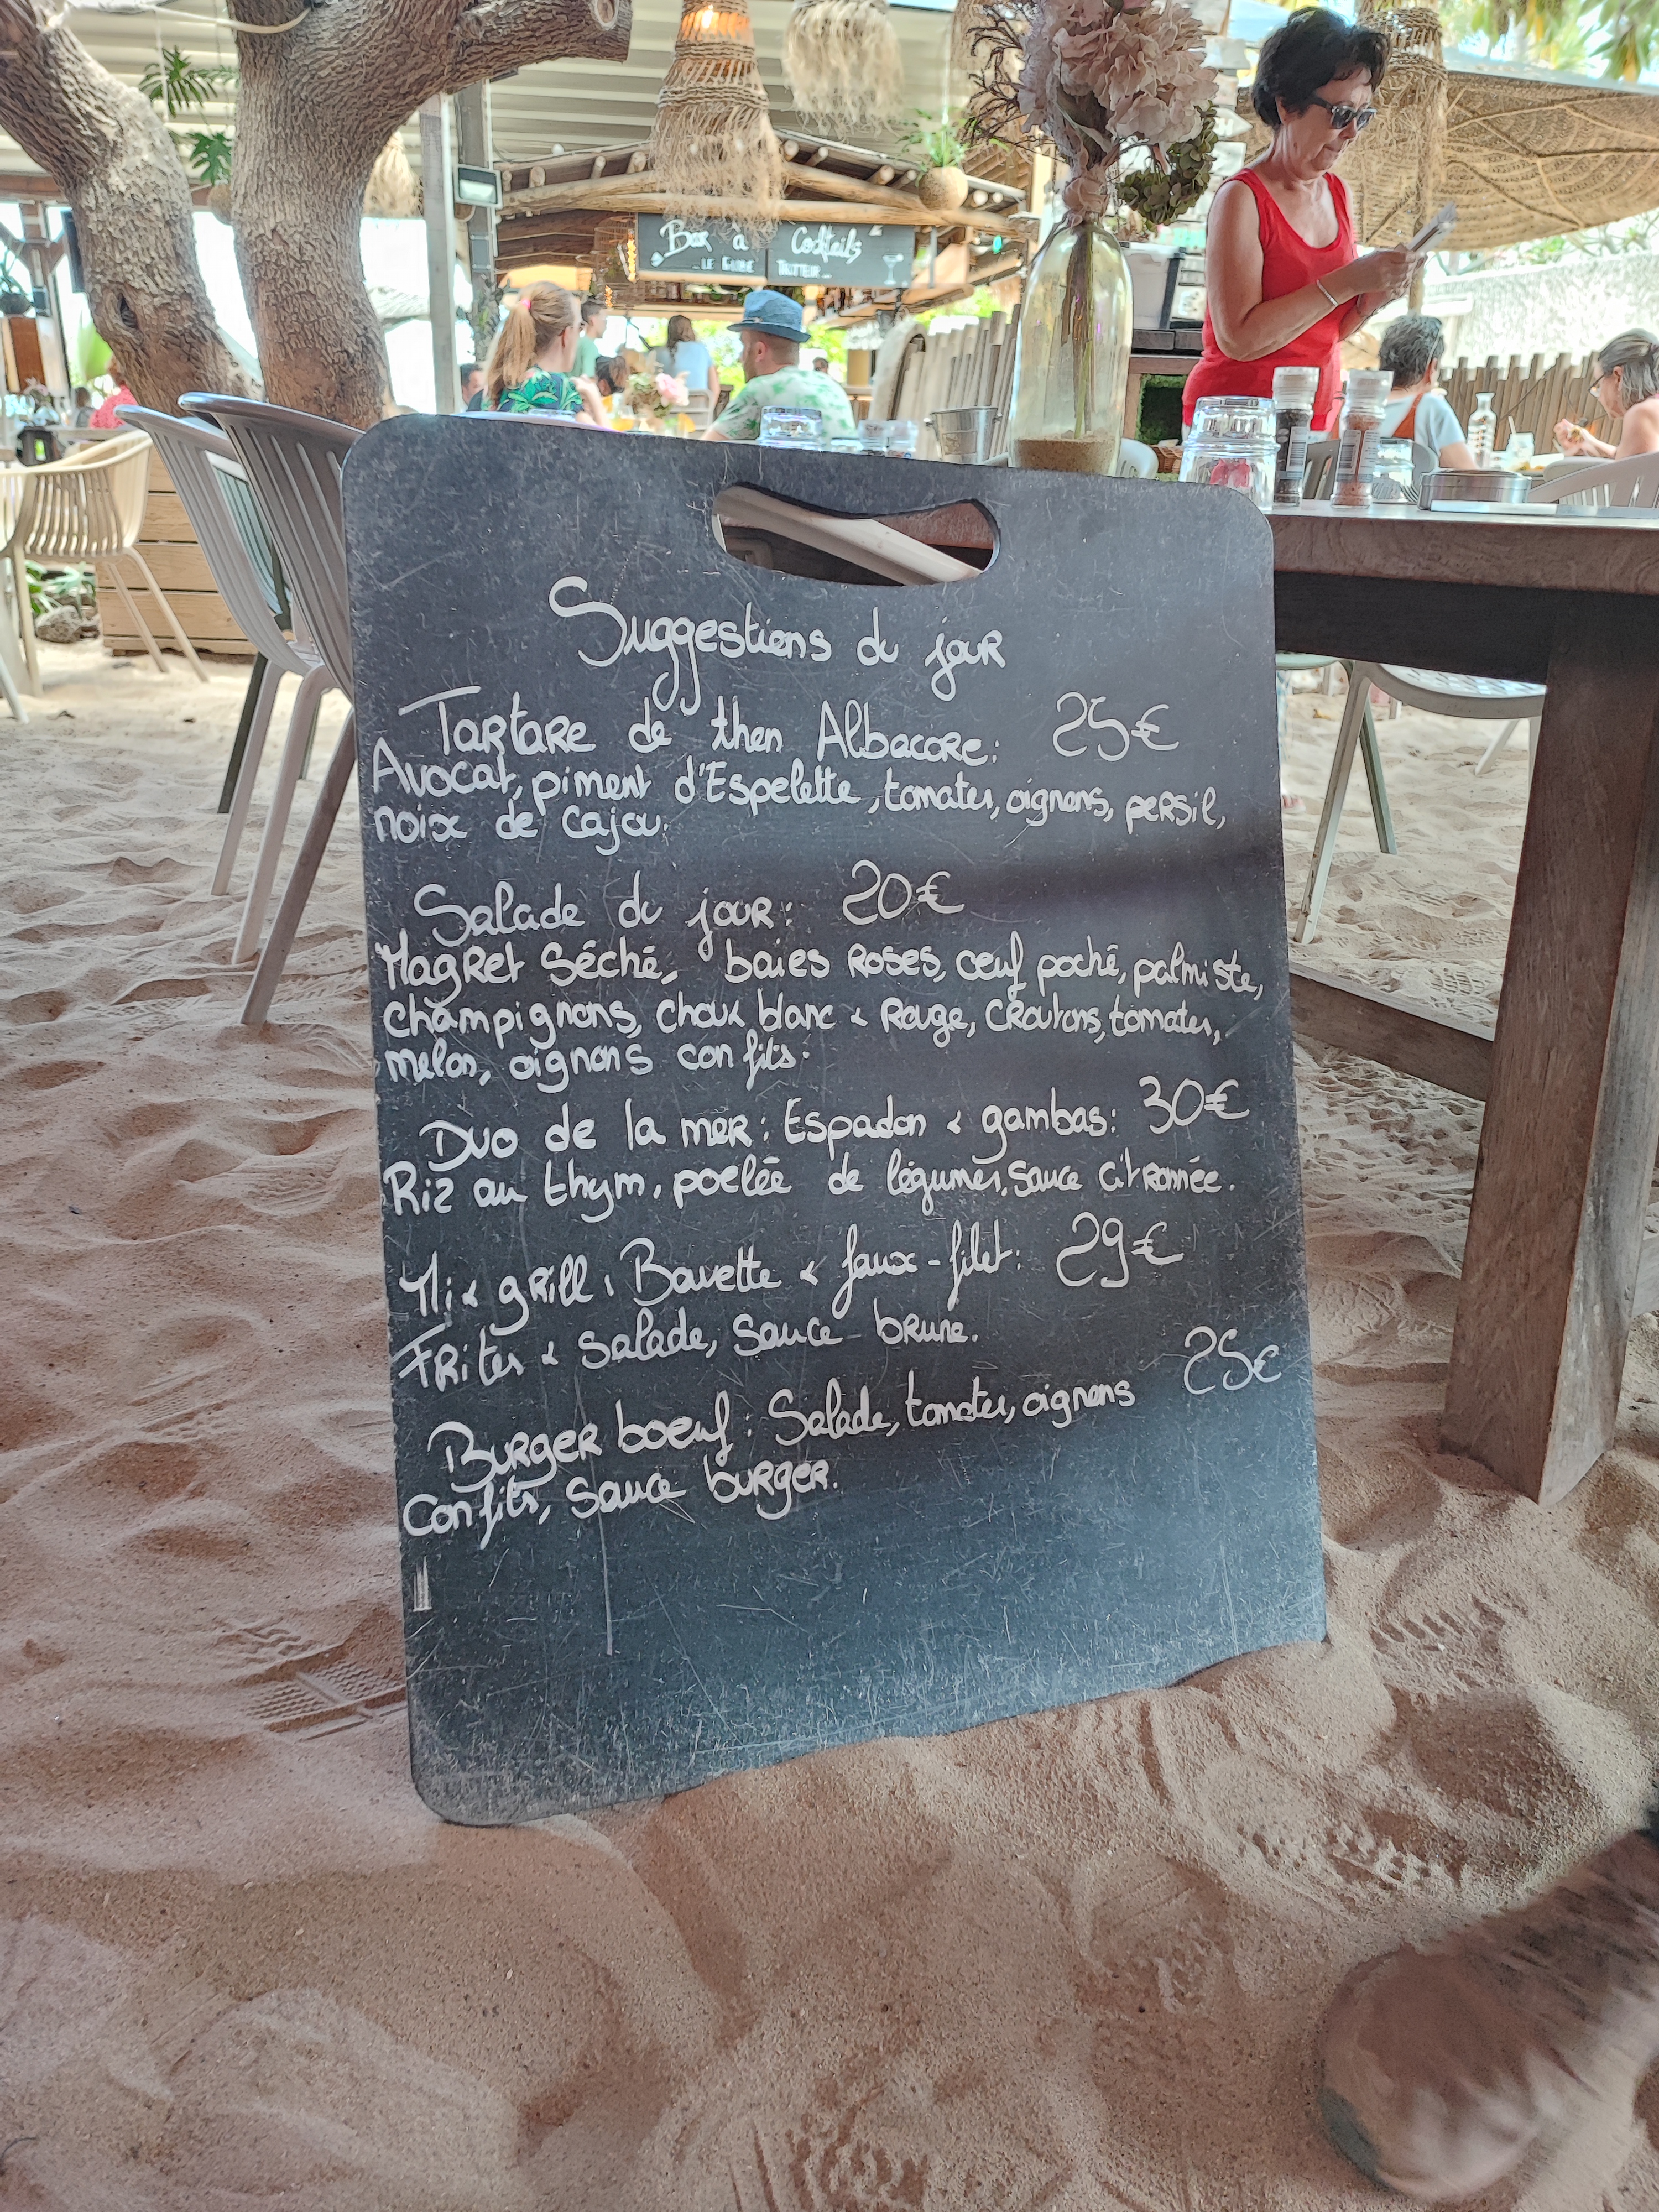 Bar à Cocktails
LE GLOBE TROTTEUR
Suggestions du jour
Tartare de thon Albacore: 25€
Avocat, piment d'Espelette, tomates, oignons, persil,
noix de cajou.
Salade du jour: 20€
Magret Séché, baies Roses, œuf poché, palmiste,
champignons, choux blanc & Rouge, Croutons, tomates,
melon, oignons confits.
Duo de la mer: Espadon & gambas: 30€
Riz au thym, poelée de légumes, sauce citronnée.
Mix grill: Bavette & faux-filet: 29€
Frites & salade, sauce brune.
Burger boeuf: Salade, tomates, oignons 25€
Confits, sauce burger.